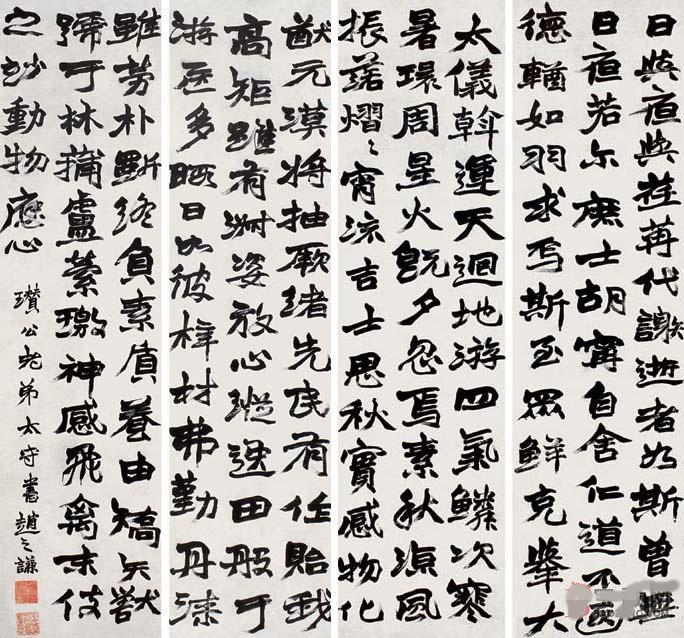 日與夜與荏苒代謝逝者如斯曾無
日夜若尔庶士胡寧自舍仁道不遐
德輶如羽求焉斯至眾鮮克舉大
太儀斡運天迴地游四氣鱗次寒
暑環周星火既夕忽焉素秋涼風
振落熠〻宵流吉士思秋實感物化
猷元漠將抽厥緒先民有作貽我
高矩雖有淑姿放心縱逸田般于
游居多暇日如彼梓材弗勤丹漆
雖勞朴斲終負素質養由矯矢獸
號于林蒲盧縈璬神感飛禽末伎
之妙動物應心 瓚公老弟太守書趙之謙